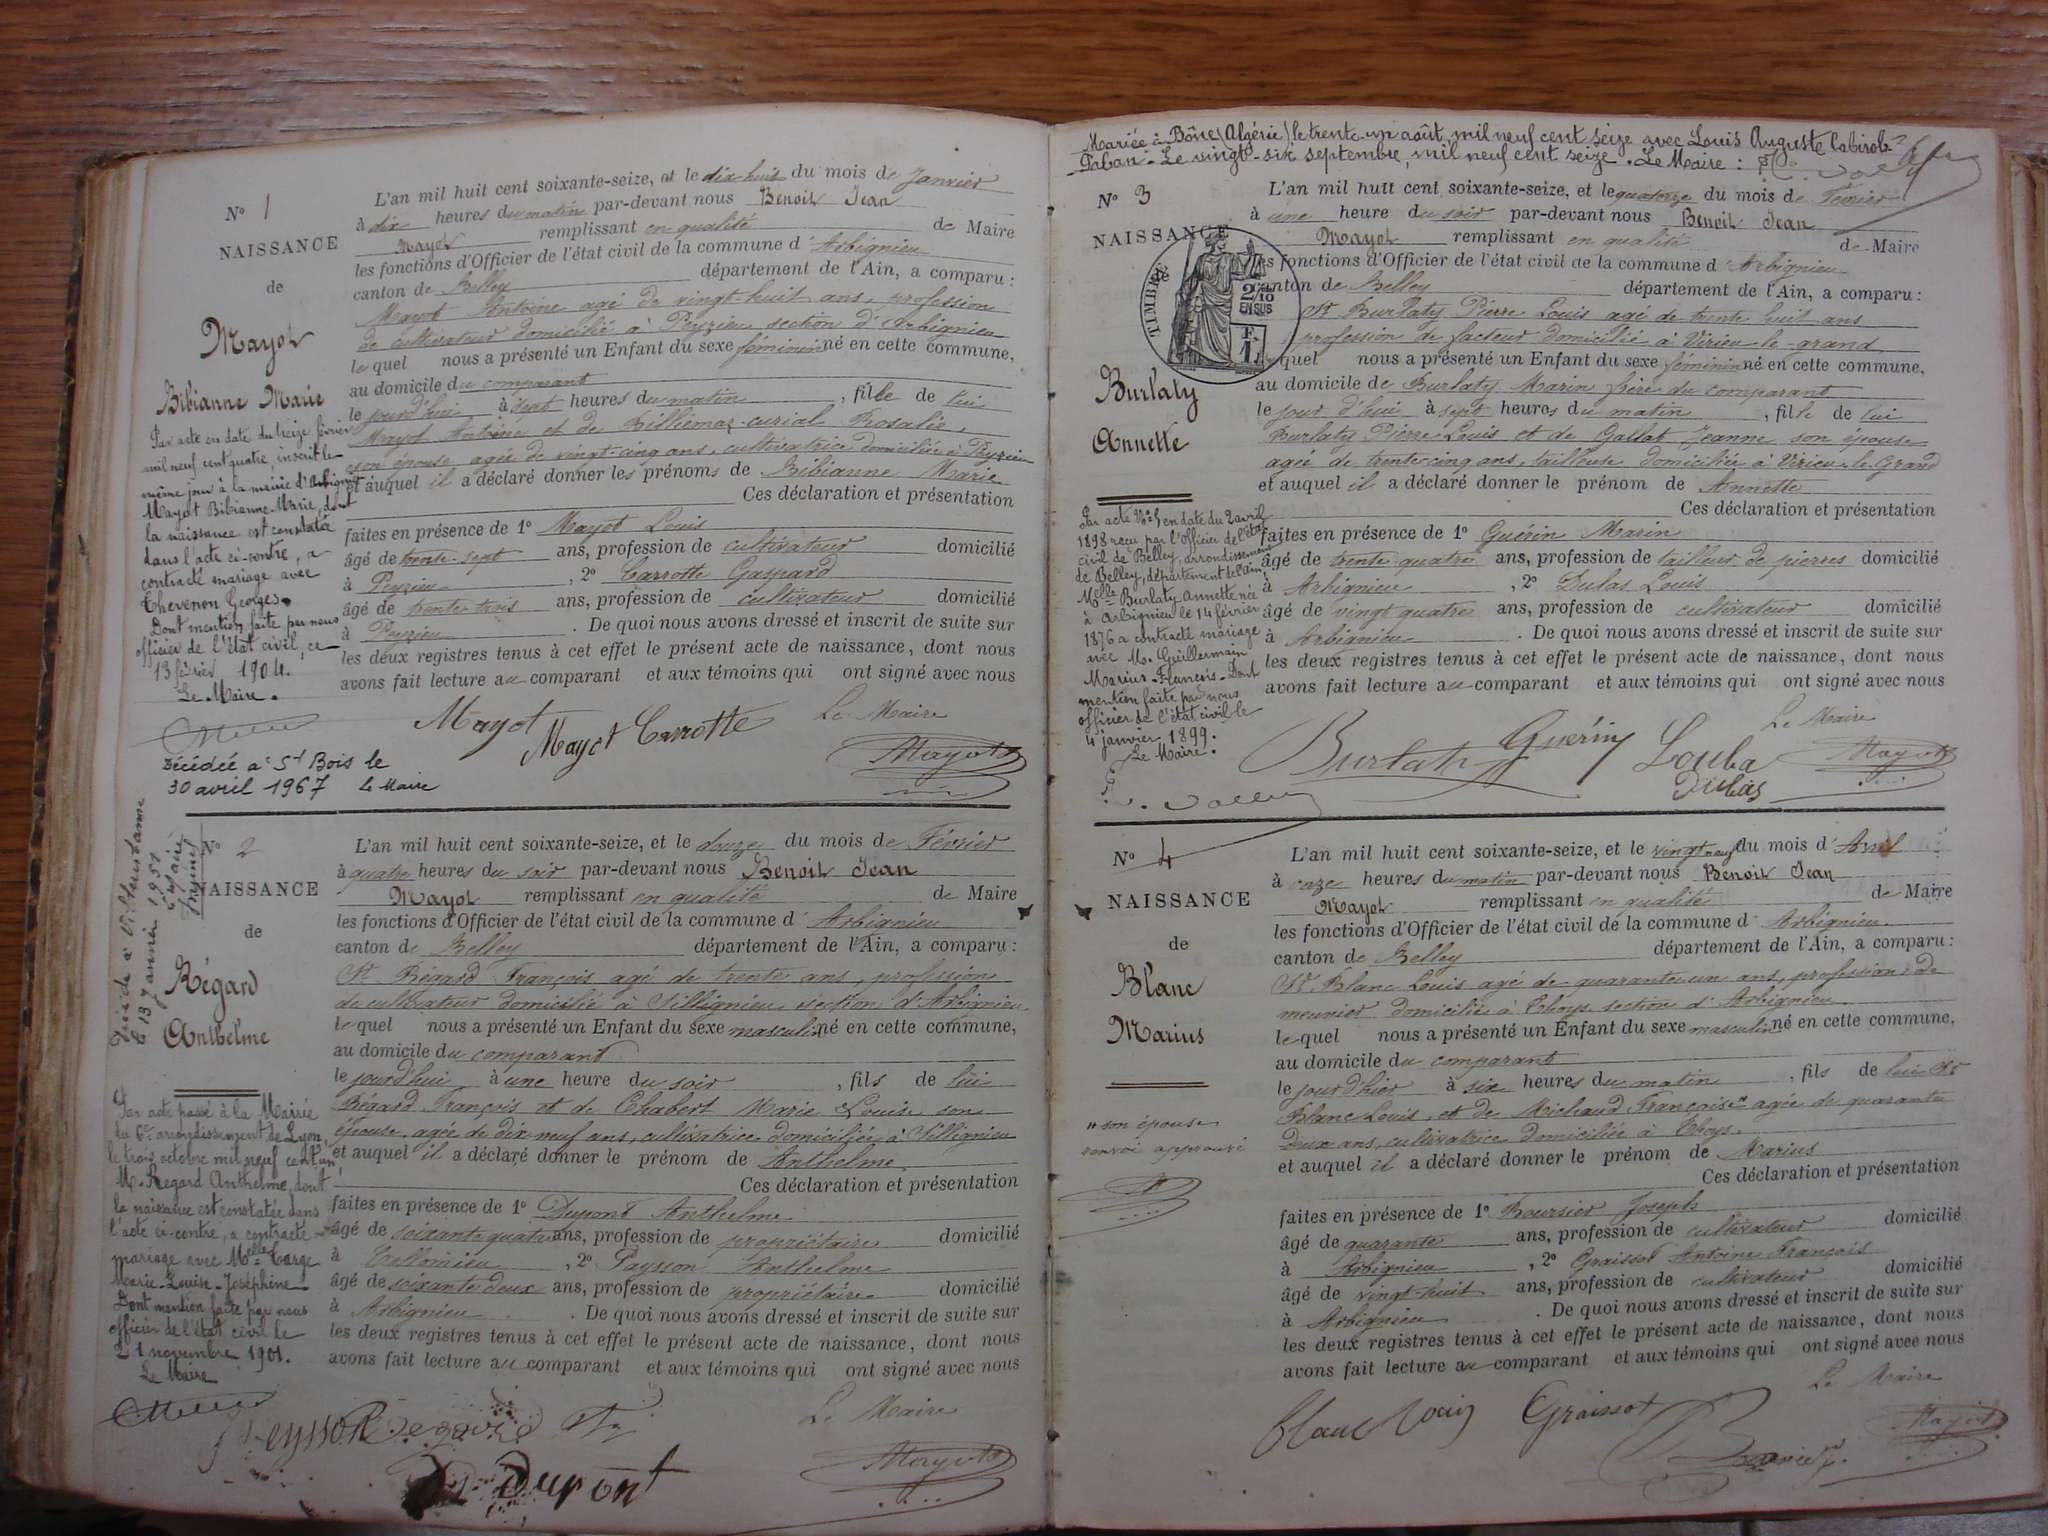 N° 1
NAISSANCE
de
Mayot
Bibianne Marie
Par acte en date du treize février
mil neuf cent quatre, inscrit le
même jour à la mairie d'Arbignieu
Mayot Bibianne-Marie, dont
la naissance est constatée
dans l'acte ci-contre, a
contracté mariage avec
Thevenon Georges.
Dont mention faite par nous
officier de l'état civil, ce
13 février 1904.
Le Maire.
Décédée à St Bois le
30 avril 1967 Le Maire
L'an mil huit cent soixante-seize, et le dix huit du mois de Janvier
à dix heures du matin par-devant nous Benoit Jean
Mayot remplissant en qualité de Maire
les fonctions d'Officier de l'état civil de la commune d'Arbignieu
canton de Belley département de l'Ain, a comparu :
Mayot Antoine agé de vingt-huit ans, profession
de cultivateur domicilié à Peyzieu section d'Arbignieu
le quel nous a présenté un Enfant du sexe féminin né en cette commune,
au domicile du comparant
le jourd'hui à sept heures du matin, fille de lui
Mayot Antoine et de Billiemaz-curial Rosalie,
son épouse agée de vingt-cinq ans, cultivatrice domiciliée à Peyzieu
et auquel il a déclaré donner les prénoms de Bibianne Marie
Ces déclaration et présentation
faites en présence de 1° Mayot Louis
âgé de trente-sept ans, profession de cultivateur domicilié
à Peyzieu, 2° Carrotte Gaspard
âgé de trente trois ans, profession de cultivateur domicilié
à Peyzieu. De quoi nous avons dressé et inscrit de suite sur
les deux registres tenus à cet effet le présent acte de naissance, dont nous
avons fait lecture au comparant et aux témoins qui ont signé avec nous
Le Maire
Mayot Mayot Carrotte Mayot
N° 2
NAISSANCE
de
Régard
Anthelme
le 13 janvier 1951
Par acte passé à la Mairie
du 6e arrondissement de Lyon,
le trois octobre mil neuf cent un
M. Regard Anthelme, dont
la naissance est constatée dans
l'acte ci-contre, a contracté
mariage avec Melle Large
Marie-Louise-Joséphine
Dont mention faite par nous
officier de l'état civil le
1 novembre 1901.
Le Maire
L'an mil huit cent soixante-seize, et le douze du mois de Février
à quatre heures du soir par-devant nous Benoit Jean
Mayot remplissant en qualité de Maire
les fonctions d'Officier de l'état civil de la commune d'Arbignieu
canton de Belley département de l'Ain, a comparu :
Sr Régard François agé de trente ans, profession
de cultivateur domicilié à Sillignieu section d'Arbignieu
le quel nous a présenté un Enfant du sexe masculin né en cette commune,
au domicile du comparant
le jourd'hui à une heure du soir, fils de lui
Régard François et de Chabert Marie Louise son
épouse agée de dix neuf ans, cultivatrice domiciliée à Sillignieu
et auquel il a déclaré donner le prénom de Anthelme.
Ces déclaration et présentation
faites en présence de 1° Dupont Anthelme
âgé de soixante quatre ans, profession de propriétaire domicilié
à, 2° Peysson Anthelme
âgé de soixante deux ans, profession de propriétaire domicilié
à Arbignieu. De quoi nous avons dressé et inscrit de suite sur
les deux registres tenus à cet effet le présent acte de naissance, dont nous
avons fait lecture au comparant et aux témoins qui ont signé avec nous
Le Maire
Peysson Regard Fs
Dupont Mayot
Mariée à Bône (Algérie) le trente-un août mil neuf cent seize avec Louis Auguste
Le vingt-six septembre, mil neuf cent seize. Le Maire :
N° 3
NAISSANCE
de
TIMBRE
2/10
EN SUS
F.
1
Burlaty
Annette
Par acte N° 5 en date du 2 avril
1898 reçu par l'Officier de l'état
civil de Belley, arrondissement
de Belley, département de l'Ain,
Melle Burlaty Annette née
à Arbignieu le 14 février
1876 a contracté mariage
avec M. Guillermain
Marius-François. Dont
mention faite par nous
officier de l'état civil le
4 janvier 1899.
Le Maire.
L'an mil huit cent soixante-seize, et le quatorze du mois de Février
à une heure du soir par-devant nous Benoit Jean
Mayot remplissant en qualité de Maire
les fonctions d'Officier de l'état civil de la commune d'Arbignieu
canton de Belley département de l'Ain, a comparu :
Sr Burlaty Pierre Louis agé de trente huit ans
profession de facteur domicilié à Virieu-le-grand
le quel nous a présenté un Enfant du sexe féminin né en cette commune,
au domicile de Burlaty Marin frère du comparant
le jour d'hui à sept heures du matin, fille de lui
Burlaty Pierre Louis et de Gallat Jeanne son épouse
agée de trente cinq ans, tailleuse domiciliée à Virieu-le-Grand
et auquel il a déclaré donner le prénom de Annette
Ces déclaration et présentation
faites en présence de 1° Guérin Marin
âgé de trente-quatre ans, profession de tailleur de pierres domicilié
à Arbignieu, 2° Dulas Louis
âgé de vingt quatre ans, profession de cultivateur domicilié
à Arbignieu. De quoi nous avons dressé et inscrit de suite sur
les deux registres tenus à cet effet le présent acte de naissance, dont nous
avons fait lecture au comparant et aux témoins qui ont signé avec nous
Le Maire
Burlaty Guérin Mayot
Dulas
N° 4
NAISSANCE
de
Blanc
Marius
" son épouse
renvoi approuvé
M
L'an mil huit cent soixante-seize, et le vingt neuf du mois d'Avril
à onze heures du matin par-devant nous Benoit Jean
Mayot remplissant en qualité de Maire
les fonctions d'Officier de l'état civil de la commune d'Arbignieu.
canton de Belley département de l'Ain, a comparu :
Sr Blanc Louis agé de quarante un ans, profession de
meunier domicilié à Thoys section d'Arbignieu
le quel nous a présenté un Enfant du sexe masculin né en cette commune,
au domicile du comparant
le jourd'hier à six heures du matin, fils de lui Sr
Blanc Louis, et de Michaud Françoise " agée de quarante
deux ans, cultivatrice domiciliée à Thoys.
et auquel il a déclaré donner le prénom de Marius
Ces déclaration et présentation
faites en présence de 1° Boursier Joseph
âgé de quarante ans, profession de cultivateur domicilié
à Arbignieu, 2° Graissot Antoine François
âgé de vingt-huit ans, profession de cultivateur domicilié
à Arbignieu. De quoi nous avons dressé et inscrit de suite sur
les deux registres tenus à cet effet le présent acte de naissance, dont nous
avons fait lecture au comparant et aux témoins qui ont signé avec nous
Le Maire
Blanc Louis Graissot Mayot